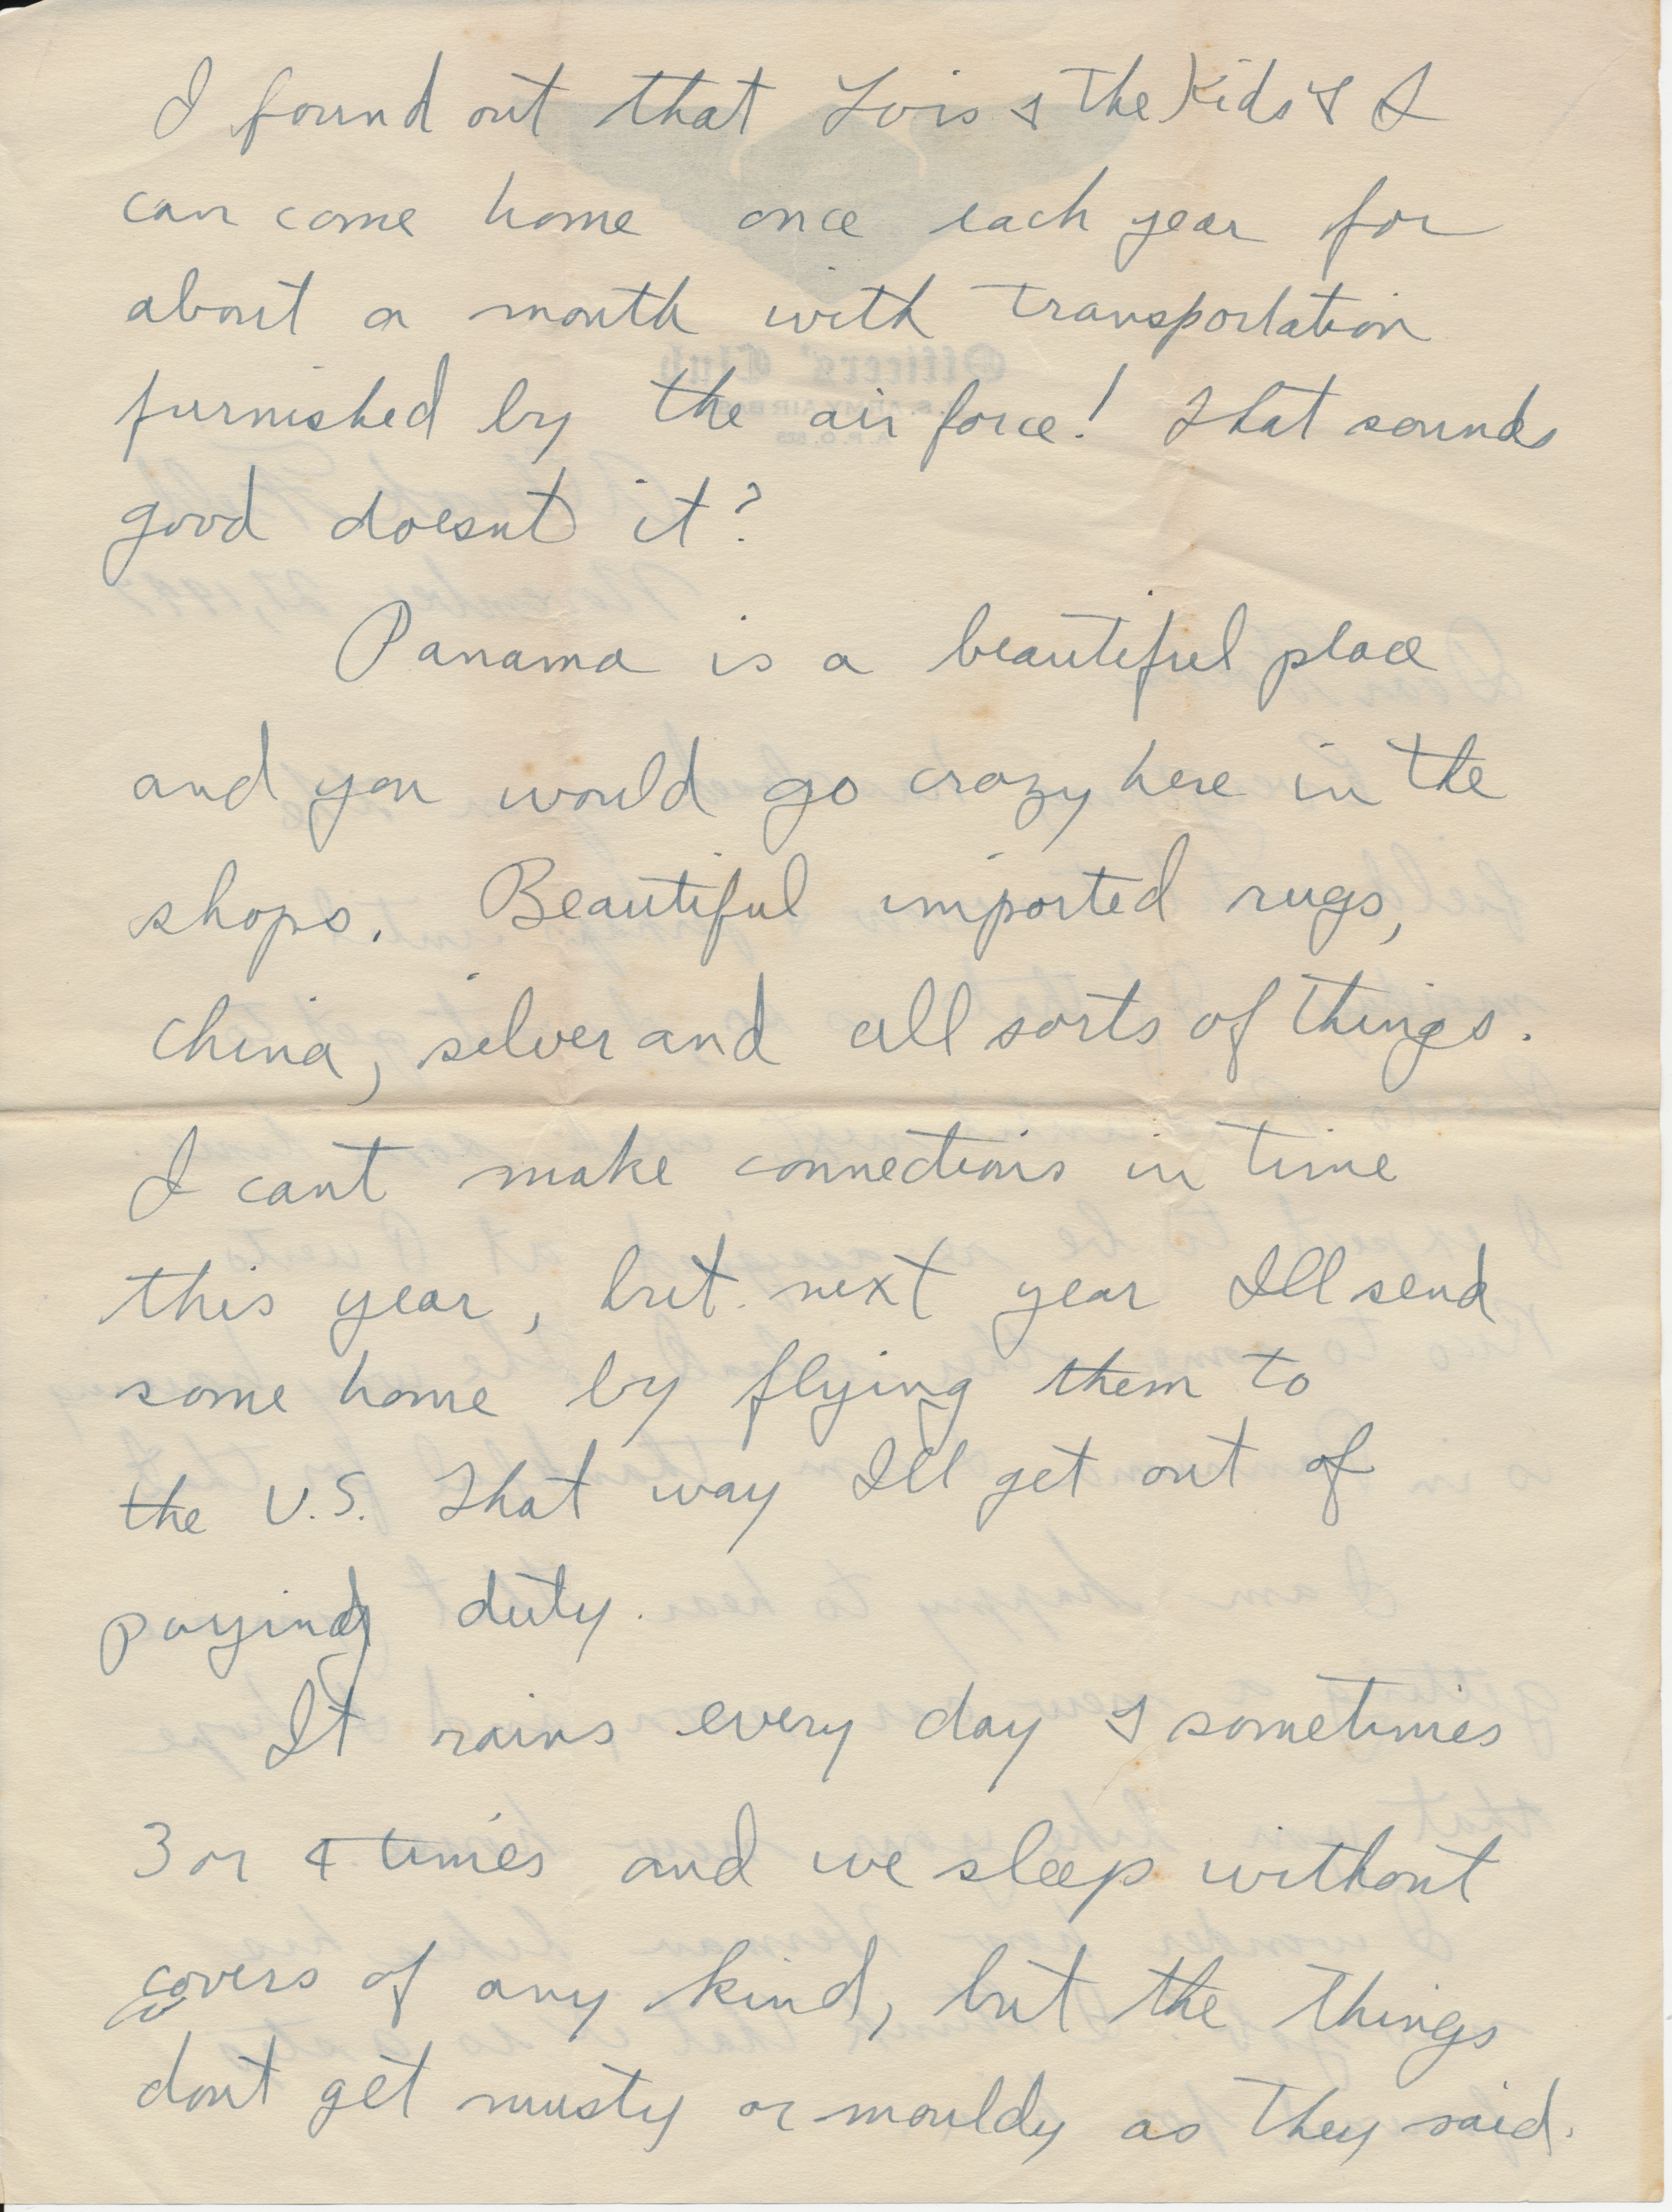 I found out that Lois & the Kids & I
can come home once each year for
about a month with transportation
furnished by the air force! That sounds
good doesnt it?
Panama is a beautiful place
and you would go crazy here in the
shops. Beautiful imported rugs,
china, silver and all sorts of things.
I cant make connections in time
this year, but next year Ill send
some home by flying them to
the U.S. That way Ill get out of
paying duty.
It rains every day & sometimes
3 or 4 times and we sleep without
covers of any kind, but the things
dont get musty or mouldy as they said.